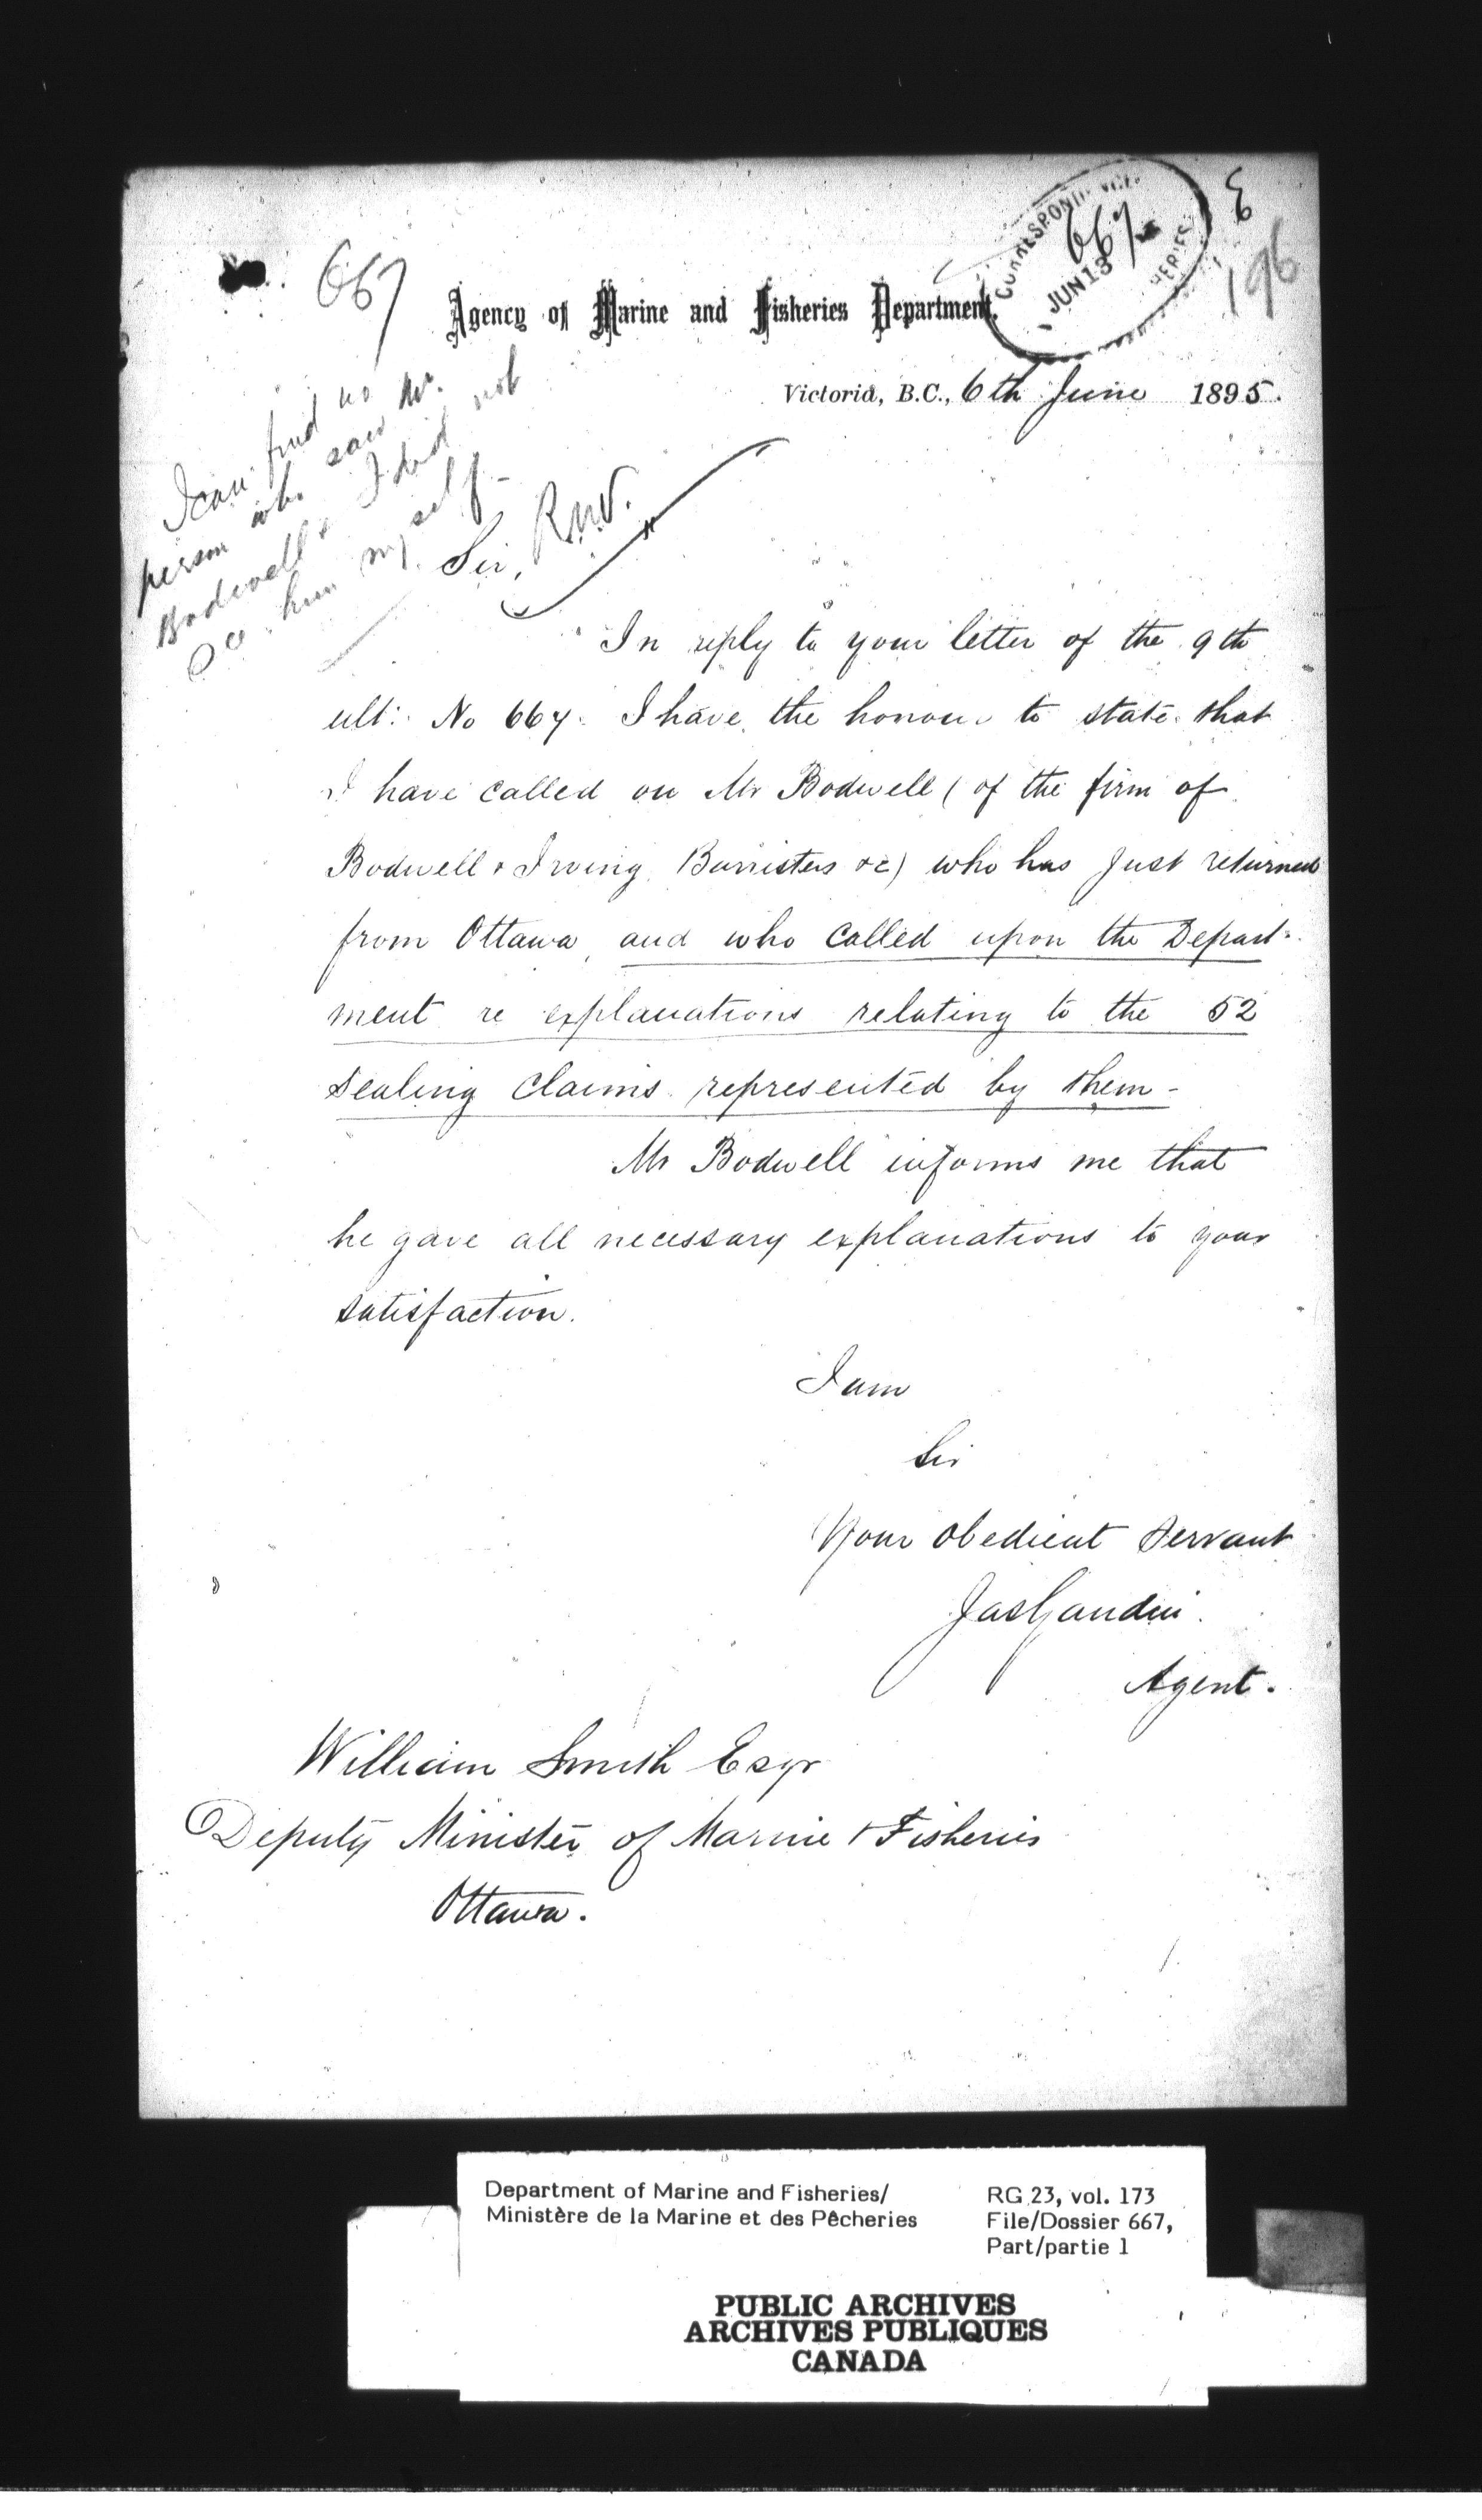 667
196
CORRESPONDENCE
667
JUN 13
FISHERIES
Agency of Marine and Fisheries Department.
Victoria, B.C., 6th June 1895.
I can find no
person who saw Mr.
Bodwell & I did not
see him myself -
R.N.V.
Sir,
In reply to your letter of the 9th
ult: No 667. I have the honour to state that
I have called on Mr Bodwell (of the firm of
Bodwell & Irving Barristers &c) who has just returned
from Ottawa, and who called upon the Depart-
ment re explanations relating to the 52
Sealing Claims represented by them -
Mr Bodwell informs me that
he gave all necessary explanations to your
satisfaction.
I am
Sir
Your obedient servant
Jas Gaudin
Agent.
William Smith Esqr
Deputy Minister of Marine & Fisheries
Ottawa.
Department of Marine and Fisheries/
Ministère de la Marine et des Pêcheries
RG 23, vol. 173
File/Dossier 667,
Part/partie 1
PUBLIC ARCHIVES
ARCHIVES PUBLIQUES
CANADA